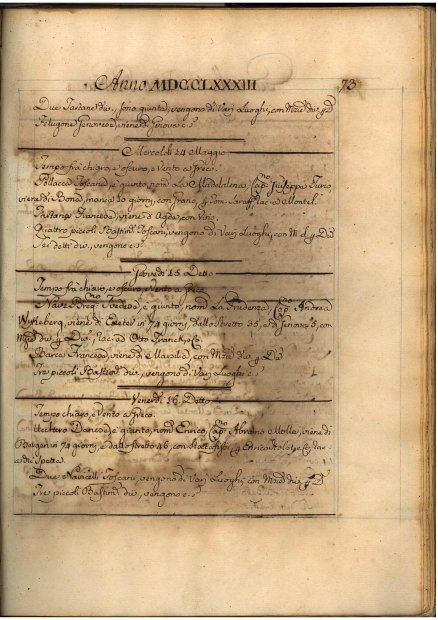 Anno MDCCLXXXIII 73
Due Tartane div., sono giunte, vengono di Varj Luoghi, con Mzie div. p. D.
Filugone Genovese, viene di Genova c. s.
Mercoldi 14 Maggio
Tempo frà chiaro, e oscuro, e Vento a Greco.
Pollacca Toscana, è giunta, nom. La Maddalena, Cap.no Giuseppe
viene di Bona, manca 20 giorni, con grano, p. rac. a
Tartana Francese, viene d'Agde, con Vino.
Quattro piccoli Bastim.ti Toscani, vengono di Varj Luoghi, con M. d. p. D.
Tre detti div., vengono c. s.
Giovedi 15 Detto
Tempo frà chiaro, e oscuro, e Vento a Greco
Nave Svedese, è giunta, nom. La Prudenza, Cap.no Andrea
viene di in 74 giorni, dallo stretto 35, e da Genova 3, con
Mzie div. p. Div., rac. ad Otto Franck, e C.
Barca Francese, viene di Marsilia, con Mzie div. p. D.
Tre piccoli Bastim.ti div., vengono di Varj Luoghi c. s.
Venerdi 16 Detto
Tempo chiaro, e Vento a Greco.
Danese, è giunto, nom. Enrico, Cap.no Abramo viene di
Bergan in 74 giorni, e dallo stretto 46, con p. Enrico
Due Navicelli Toscani, vengono di Varj Luoghi, con Mzie div. p. D.
Tre piccoli Bastim.ti div., vengono c. s.